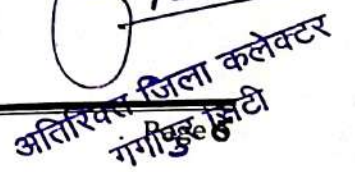 अतिरिक्त जिला कलेक्टर
गंगापुर सिटी
Page 6